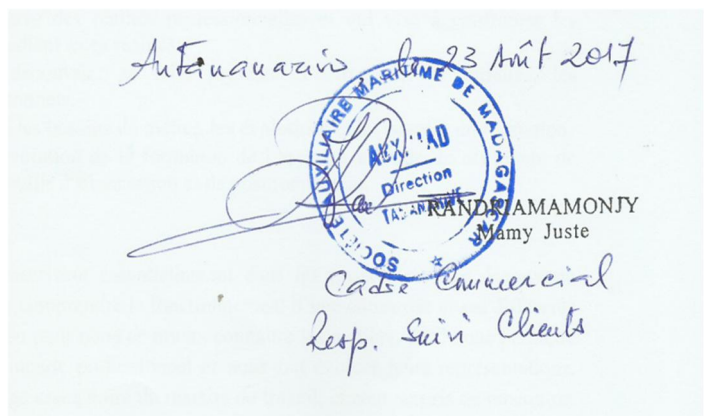 Antananarivo, le 23 Août 2017
SOCIÉTÉ AUXILIAIRE MARITIME DE MADAGASCAR
AUXIMAD
Direction
TAMATAVE
RANDRIAMAMONJY
Mamy Juste
Cadre Commercial
Resp. Suivi Clients